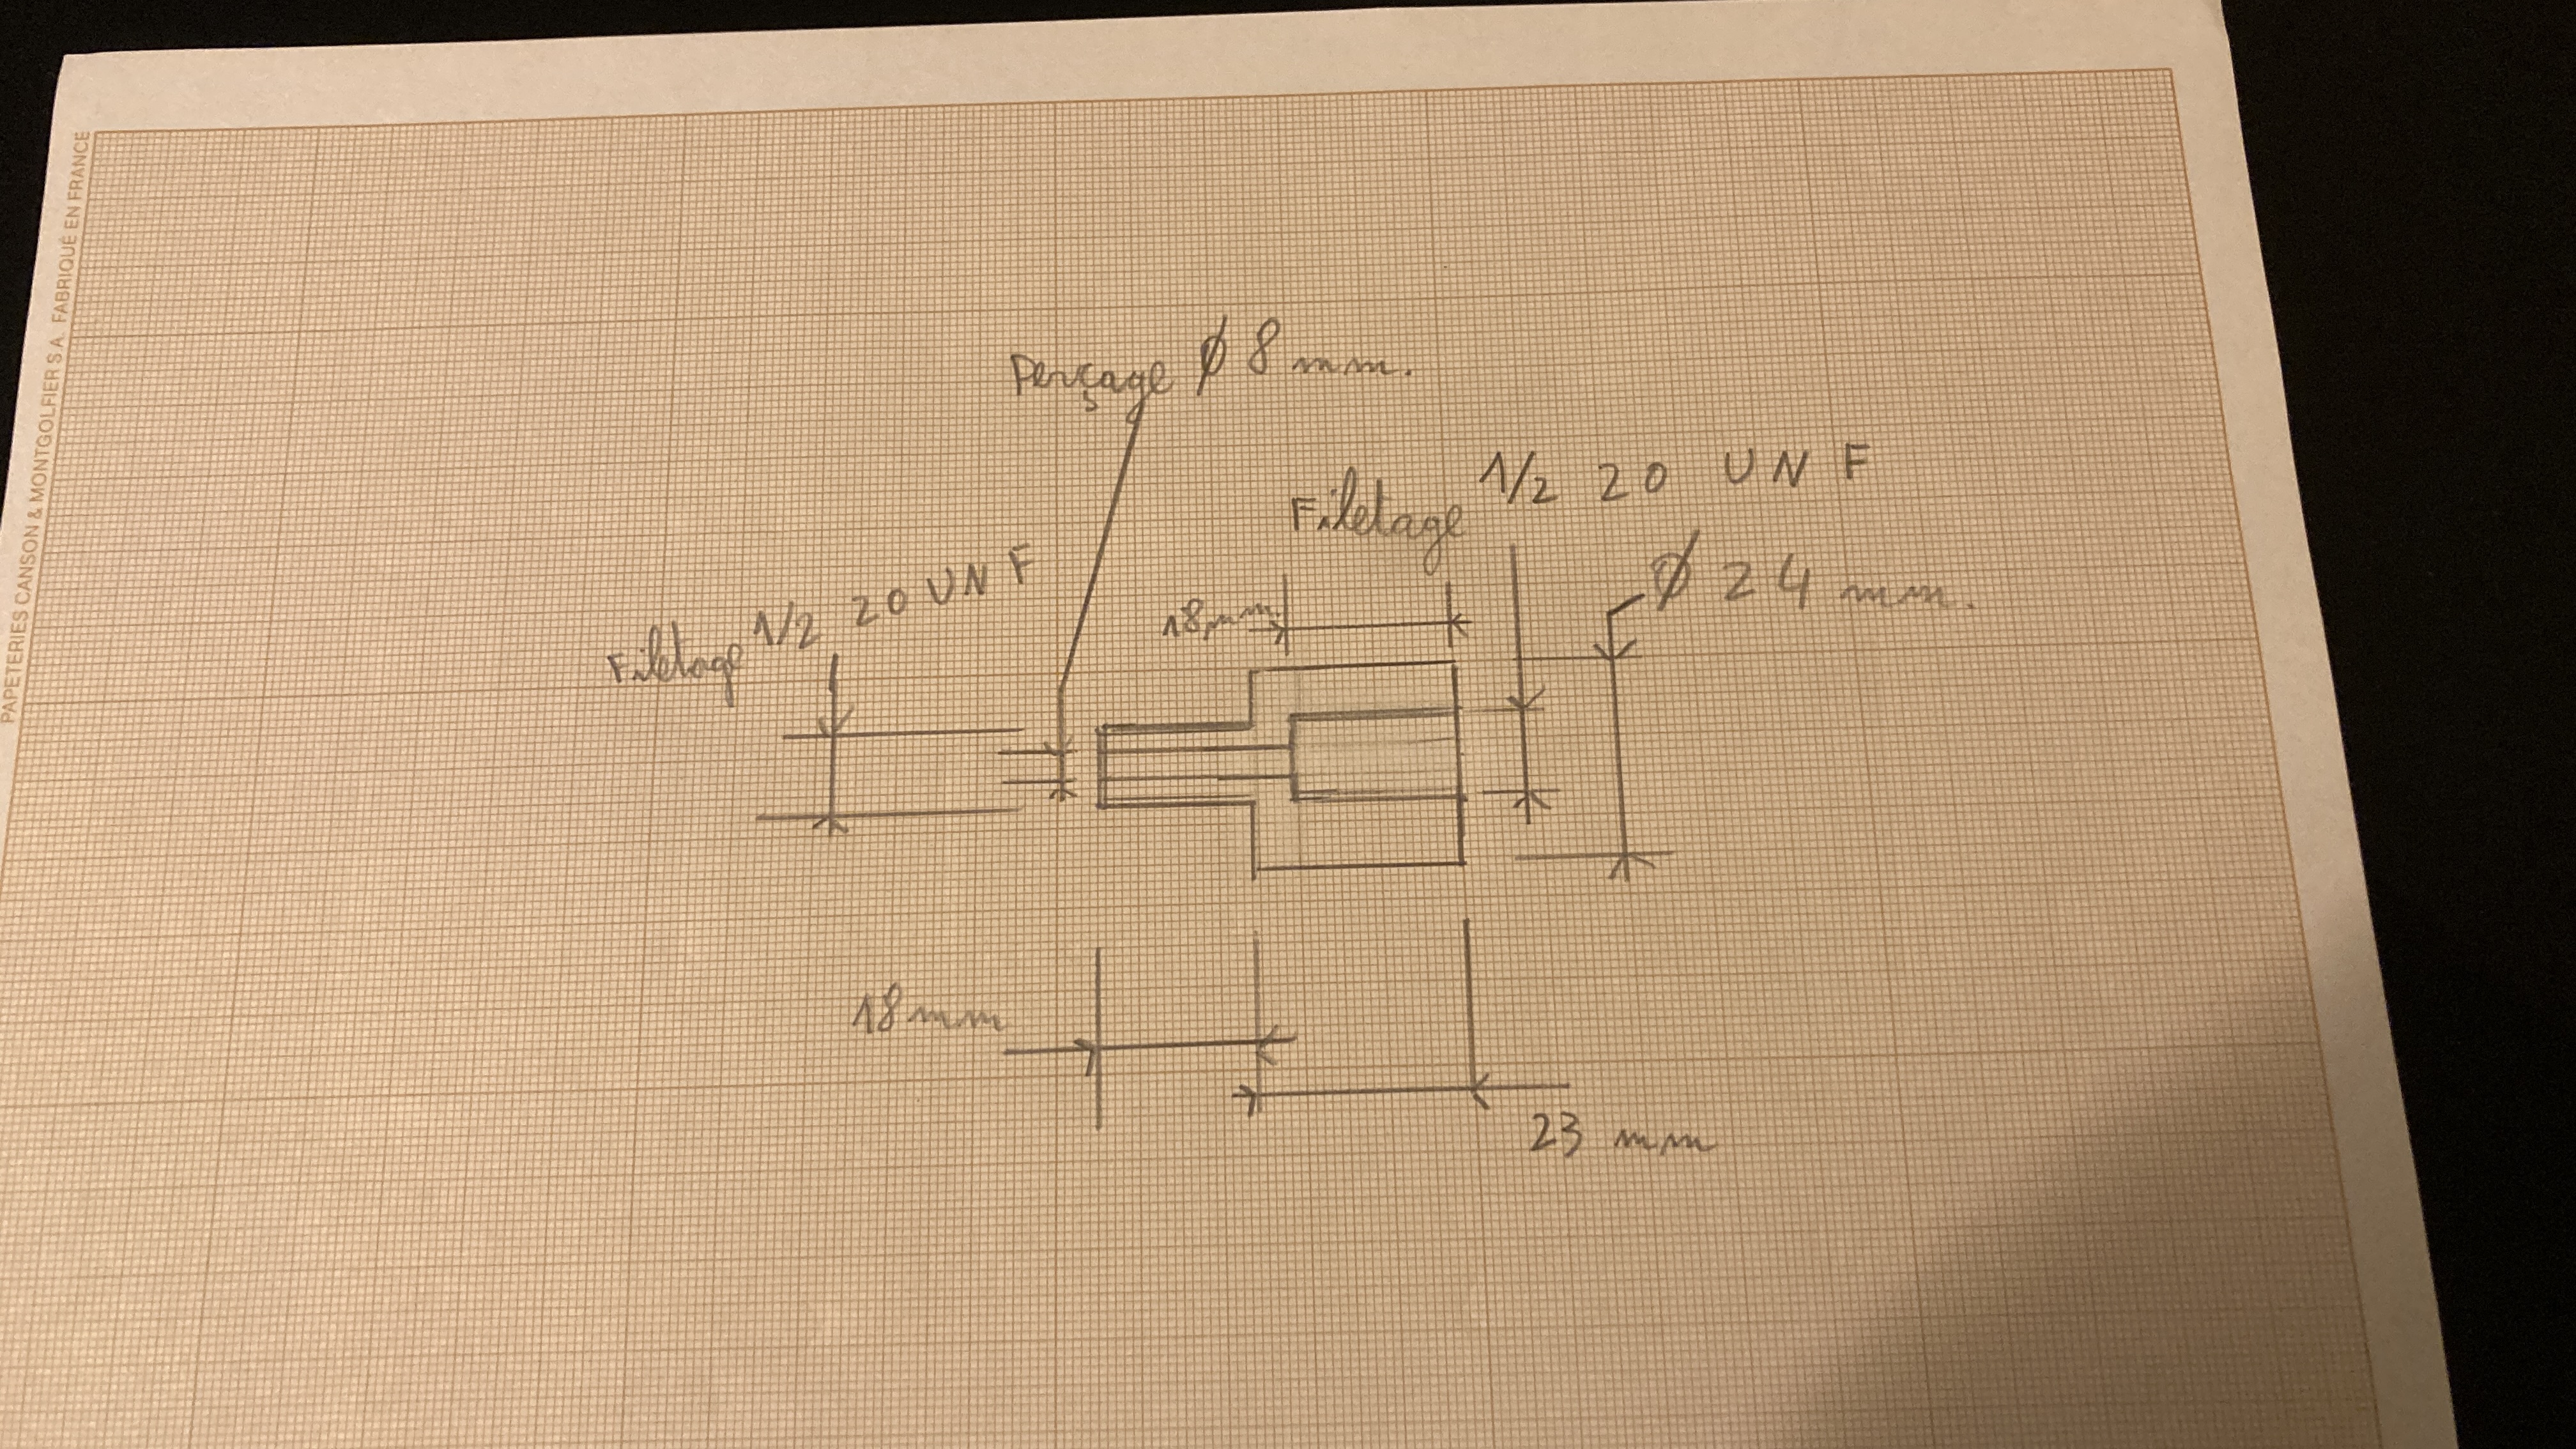 PAPETERIES CANSON & MONTGOLFIER S.A. FABRIQUÉ EN FRANCE
Perçage Ø 8 mm.
Filetage 1/2 20 UNF
Filetage 1/2 20 UNF
Ø 24 mm.
18 mm
18 mm
23 mm